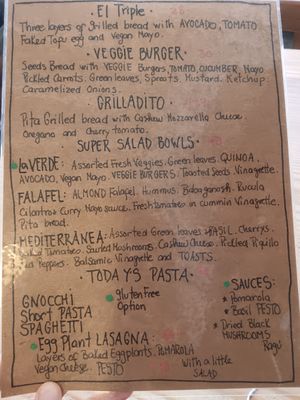 El Triple
Three layers of Grilled bread with AVOCADO, TOMATO
Faked Tofu egg and Vegan Mayo.
VEGGIE BURGER
Seeds Bread with VEGGIE Burgers, TOMATO, CUCUMBER, Mayo
Pickled Carots. Green leaves, Sprouts, Mustard. Ketchup.
Caramelized Onions.
GRILLADITO
Pita Grilled bread with Cashew Mozzarella Cheese
Oregano and Cherry tomato.
SUPER SALAD BOWLS
La VERDE: Assorted Fresh Veggies. Green leaves. QUINOA,
AVOCADO, Vegan Mayo. VEGGIE BURGERS. Toasted Seeds. Vinagrette.
FALAFEL: ALMOND Falafel. Hummus. Babaganosh. Rucula
Cilantro & Curry Mayo sauce. Fresh tomatoes in cummin Vinagrette.
Pita bread.
MEDITERRÁNEA: Assorted Green leaves BASIL. Cherrys.
Baked Tomatoes. Sauted Mushrooms. Cashew Cheese. Pickled Piquillo
Peppers. Balsamic Vinagrette and TOASTS.
TODAYS PASTA
GNOCCHI
Short PASTA
SPAGHETTI
Gluten Free
Option
SAUCES:
* Pomarola
* Basil PESTO
* Dried Black
MUSHROOMS
Ragu
Egg Plant LASAGNA:
Layers of Baked Eggplants. POMAROLA
Vegan Cheese. PESTO
With a little
SALAD